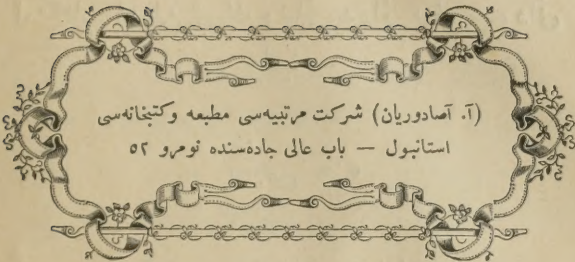 (آ. آصادوریان) شركت مرتبیه‌سی مطبعه و كتبخانه‌سی
استانبول — باب عالی جاده‌سنده نومرو ٥٢